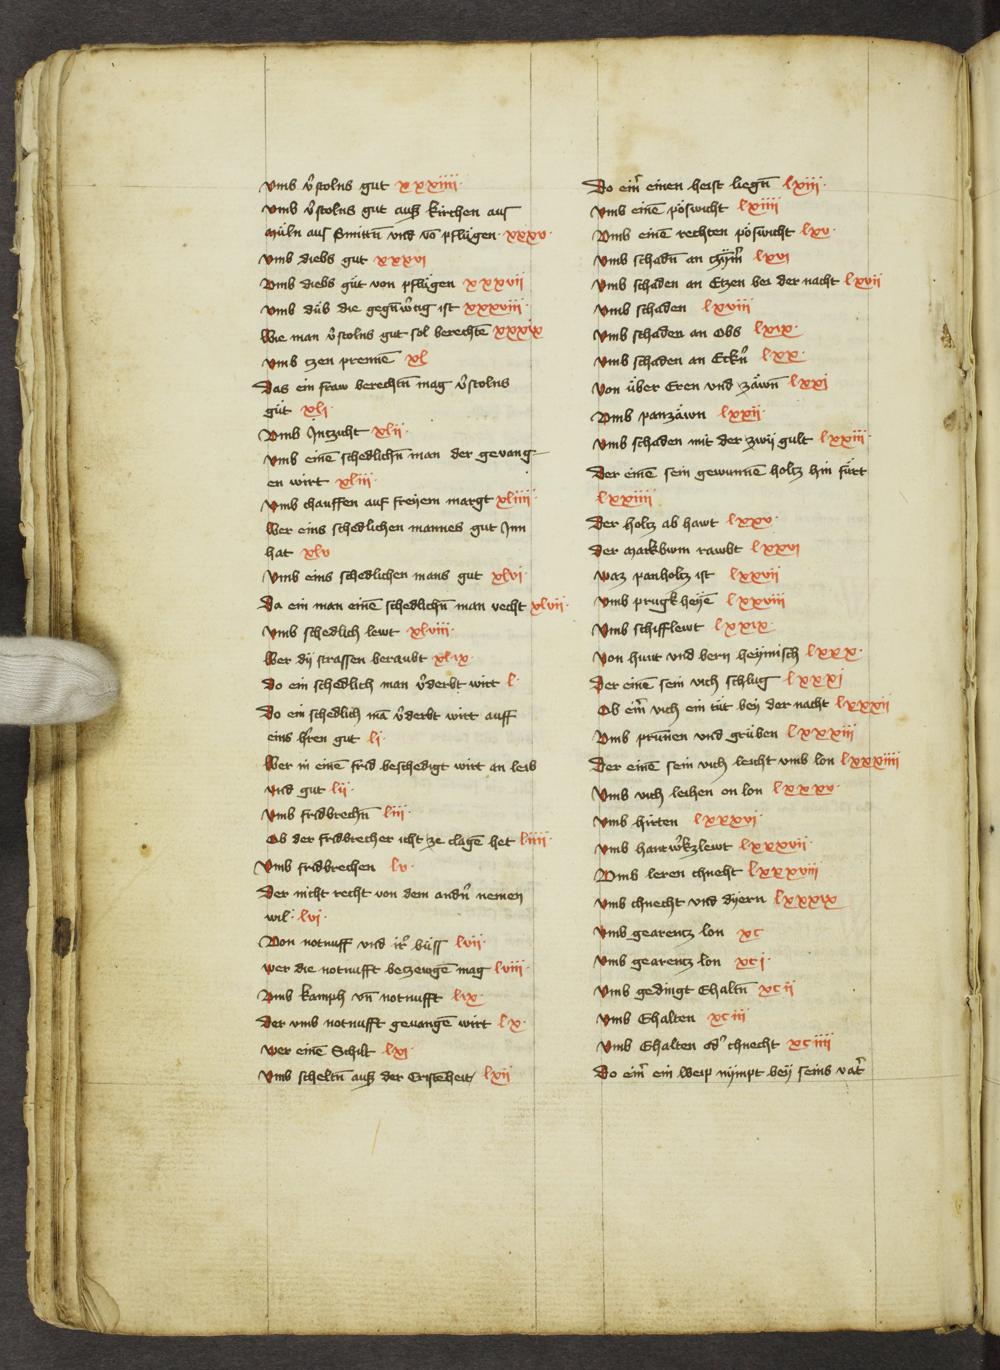 vmb v̾stolns gut xxxiiii·
vmb v̾stolns gut auß kirchen aus
mùln aus Smittn̄ vnd vō pflùgen· xxxv·
vmb diebs gut xxxvi
Vmb diebs gùt von pflùgen xxxvii
vmb dùb die gegn̄w̾tig ist xxxviii·
Wie man v̾stolns gut sol berechtē xxxix
vmb tzen prennē xl
Das ein fraw berechtn̄ mag v̾stolns
gùt xli·
Vmb Intzucht xlii·
vmb einē schedlichn̄ man der gevang-
en wirt xliii·
vmb chauffen auf freyem margt xliiii·
Wer eins schedlichen mannes gut Inn
hat xlv
vmb eins schedlichen mans gut xlvi·
Da ein man einē schedlichn̄ man vecht xlvii·
vmb schedlich lewt xlviii·
Wer dÿ strassen beraubt xlix·
do ein schedlich man v̾derbt wirt l·
Do ein schedlich mā v̾derbt wirt auff
eins h̾ren gut li·
Wer in einē frid beschedigt wirt an leib
vnd gut lii·
vmb fridbrechn̄ liii·
Ob der fridbrecher icht ze clagē het liiii·
Vmb fridbrechen lv·
Der nicht recht von dem andn̾ nemen
wil· lvi·
Von notnuff vnd ir̾ bùss lvii·
wer die notnufft betzewgē mag lviii·
Vmb kamph vn̄ notnufft lix·
Der vmb notnufft gevangē wirt lx·
wer einē Schilt lxi·
vmb scheltn̄ auß der Cristēheit lxii
Do eim̾ einen heist liegn̄ lxiii·
vmb einē pöswicht lxiiii
Vmb einē rechten pöswicht lxv·
vmb schadn̄ an lxvi
vmb schaden an Etzen bei der nacht lxvii
vmb schaden lxviii
vmb schaden an Obs lxix·
vmb schaden an Eckn̾ lxx·
von über Eren vnd zäwn̄ lxxi
Vmb panzäwn lxxii·
vmb schaden mit der zwÿ gult lxxiii·
Der einē sein gewunnē holtz hin fürt
lxxiiii
Der holtz ab hawt lxxv·
der markbwm rawbt lxxvi
waz panholtz ist lxxvii
vmb prugkheyē lxxviii
vmb schifflewt lxxix·
von hunt vnd bern heymisch lxxx·
Der einē sein vich schlug lxxxi
Ob eim̾ vich ein tùt bey der nacht lxxxii
Vmb prunnen vnd grùben lxxxiii
Der einē sein vich leicht vmb lon lxxxiiii
vmb vich leihen on lon lxxxv·
vmb hirten lxxxvi·
vmb hantw̾kzlewt lxxxvii·
Vmb leren chnecht lxxxviii
vmb chnecht vnd dyern lxxxix
vmb gearentz lon xc
vmb gearentz lon xci·
vmb gedingt Ehaltn̄ xcii
vmb Ehalten xciii
vmb Ehalten od̾ chnecht xciiii
Do eim̾ ein weip nÿmpt bey seins vat̾